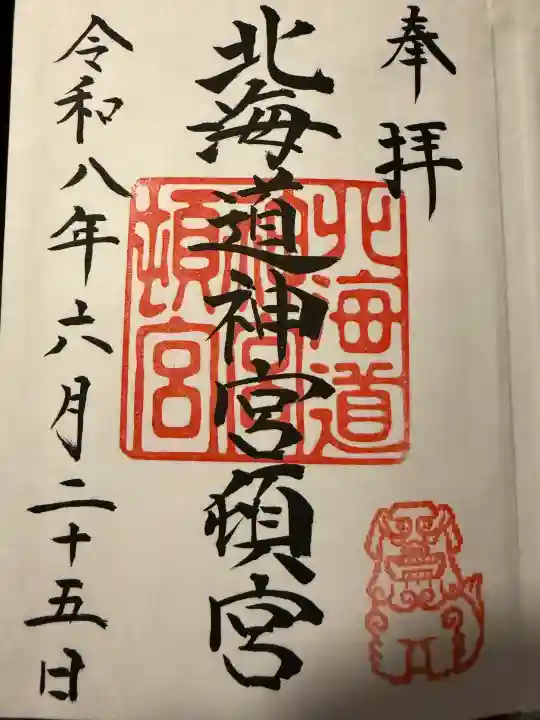 奉拝
北海道神宮頓宮
北海道
神宮
頓宮
令和八年六月二十五日